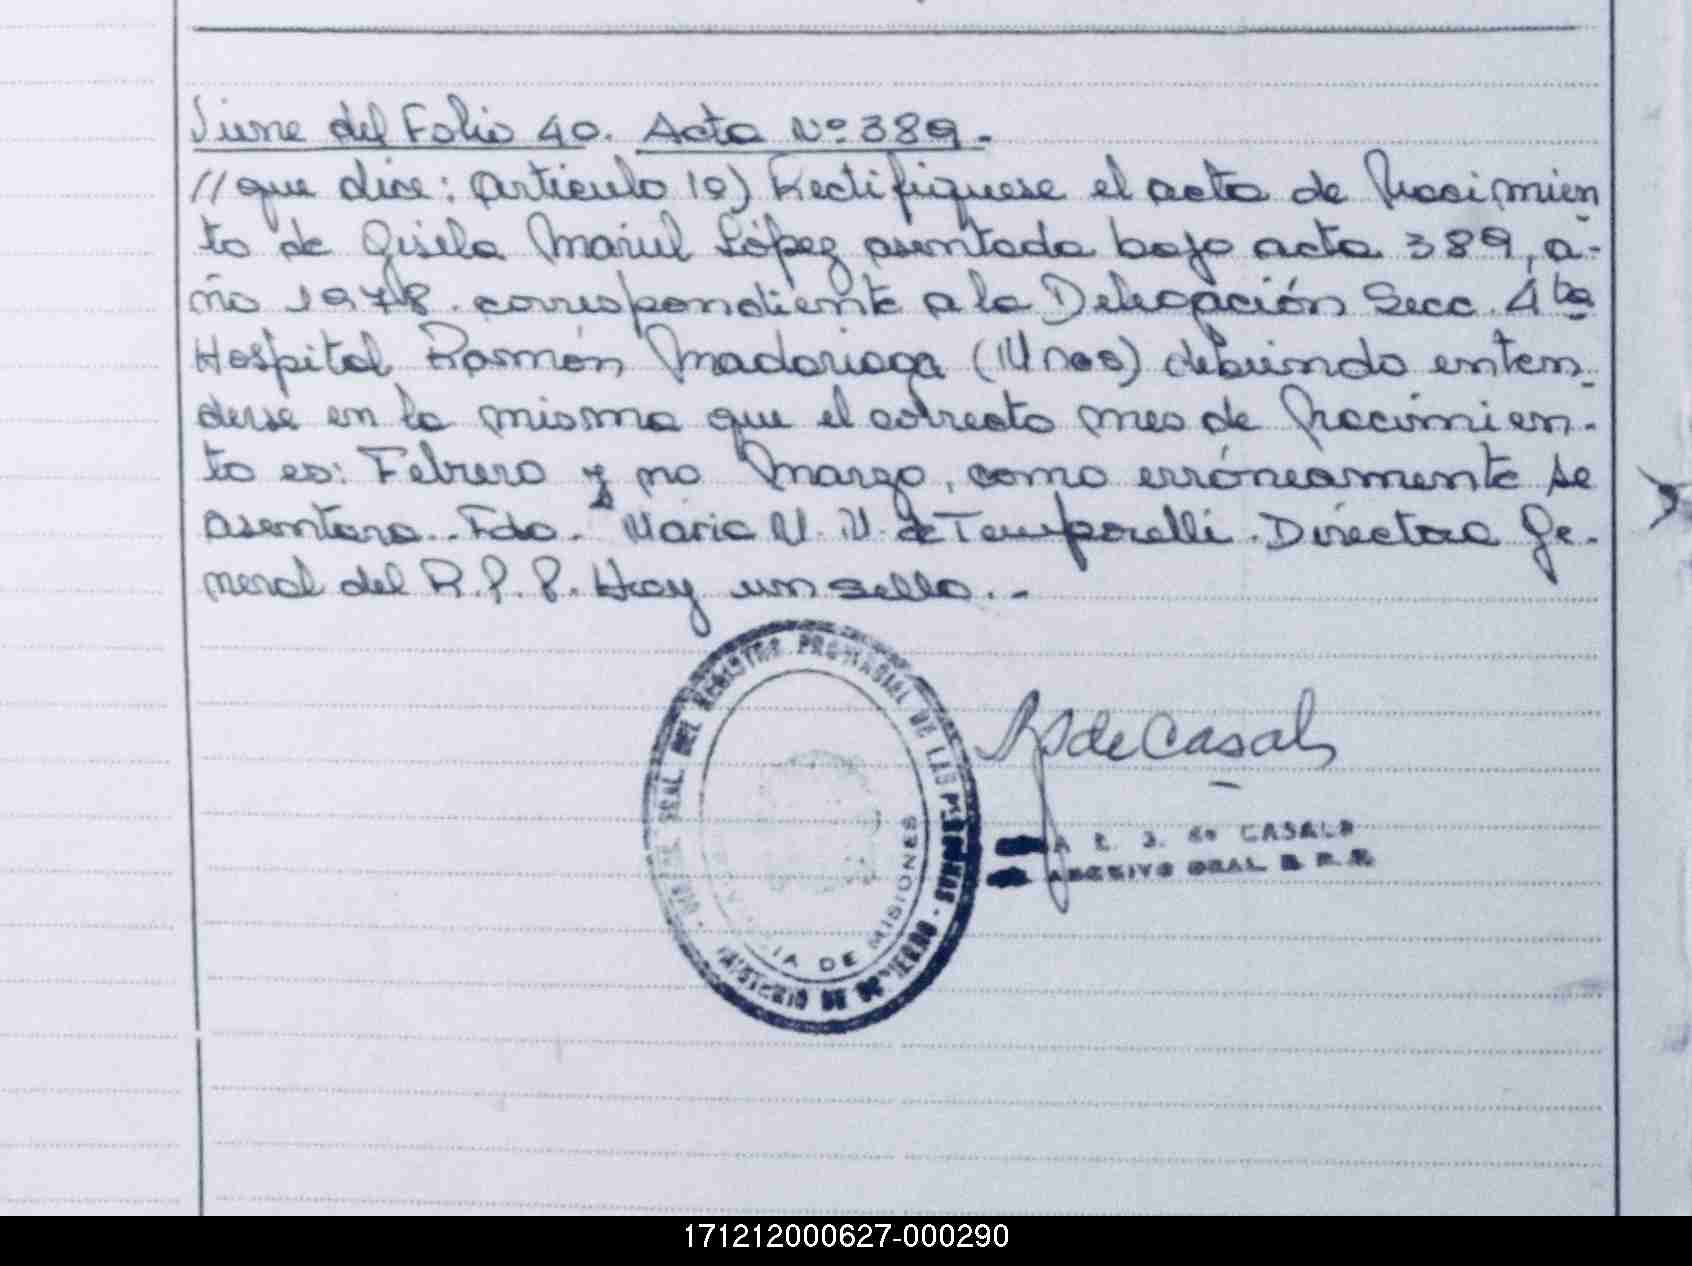 Viene del Folio 40. Acta Nº 389.-
// que dice: Articulo 1º) Rectifíquese el acta de Nacimien
to de Gisela Mariel López asentada bajo acta 389, a-
ño 1978. correspondiente a la Delegación Secc. 4ta
Hospital Ramón Madariaga (Mnes) debiendo enten-
derse en la misma que el correcto mes de Nacimien-
to es: Febrero y no Marzo, como erróneamente se
asentara.. Fdo. Maria V. V. de Temporelli. Directora Ge-
neral del R.P.P. Hay un sello..-
DEL REGISTRO PROVINCIAL DE LAS PERSONAS
DE MISIONES
de Casals
de CASALS
ARCHIVO GRAL R.P.P.
171212000627-000290